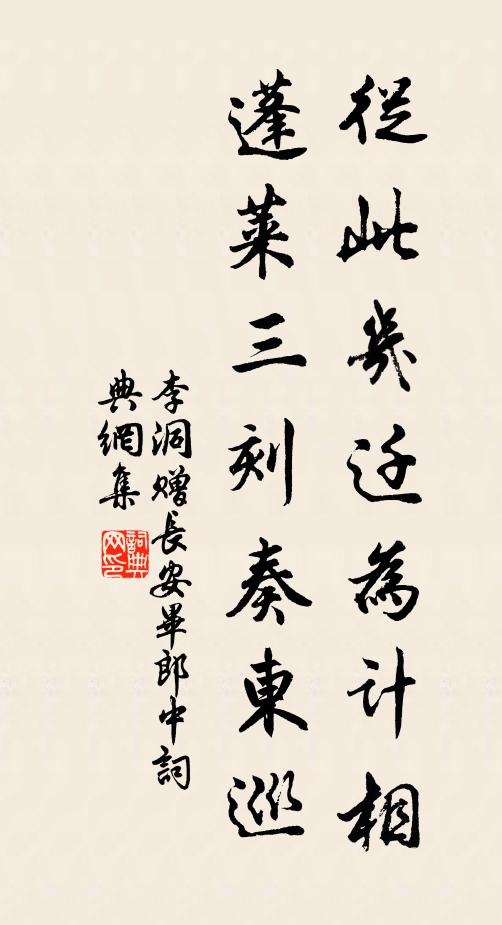 從此幾迁為計相
蓬萊三刻奏東巡
李洞贈長安畢郎中詞
典網集
詞典网印